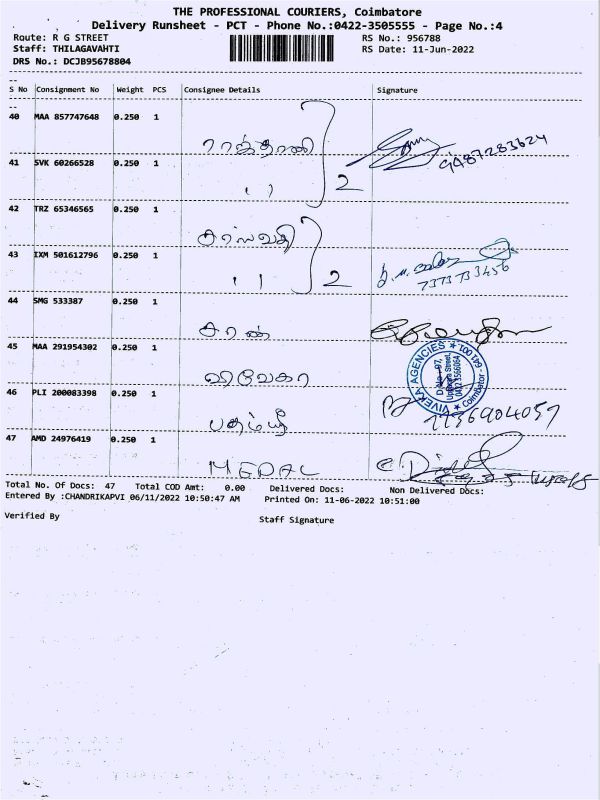 THE PROFESSIONAL COURIERS, Coimbatore
Delivery Runsheet - PCT - Phone No.:0422-3505555 - Page No.:4
Route: R G STREET
RS No.: 956788
Staff: THILAGAVAHTI
RS Date: 11-Jun-2022
DRS No.: DCJB95678804
S No Consignment No Weight PCS Consignee Details Signature
40 MAA 857747648 0.250 1
ராஜ்தானி 9487283624
41 SVK 60266528 0.250 1
,, 2
42 TRZ 65346565 0.250 1
சரஸ்வதி
43 IXM 501612796 0.250 1
,, 2 7373733456
44 SMG 533387 0.250 1
சரண்
45 MAA 291954302 0.250 1
விவேகா
VIVEKA AGENCIES ★ Coimbatore - 641 001. ★
46 PLI 200083398 0.250 1
47 AMD 24976419 0.250 1
MEDAL
Total No. Of Docs: 47 Total COD Amt: 0.00 Delivered Docs: Non Delivered Docs:
Entered By :CHANDRIKAPVI 06/11/2022 10:50:47 AM Printed On: 11-06-2022 10:51:00
Verified By
Staff Signature